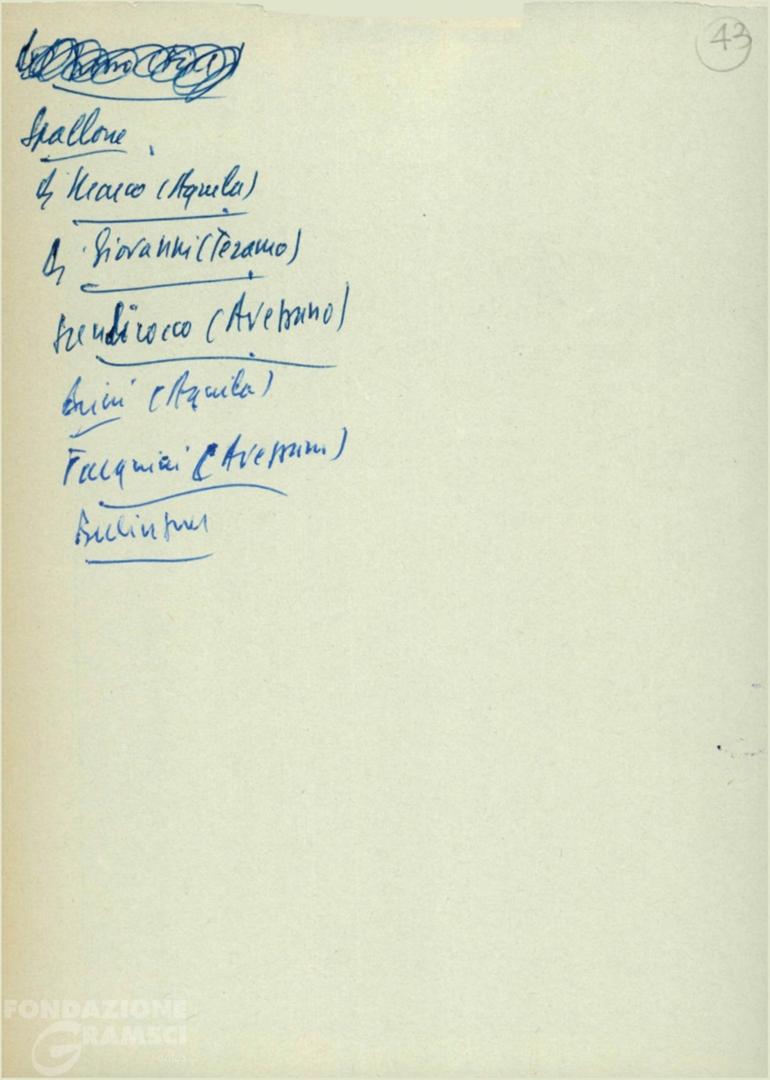 43
Spallone
di Marco (Aquila)
di Giovanni (Teramo)
Santirocco (Avezzano)
Brini (Aquila)
(Avezzano)
Berlinguer
FONDAZIONE
GRAMSCI